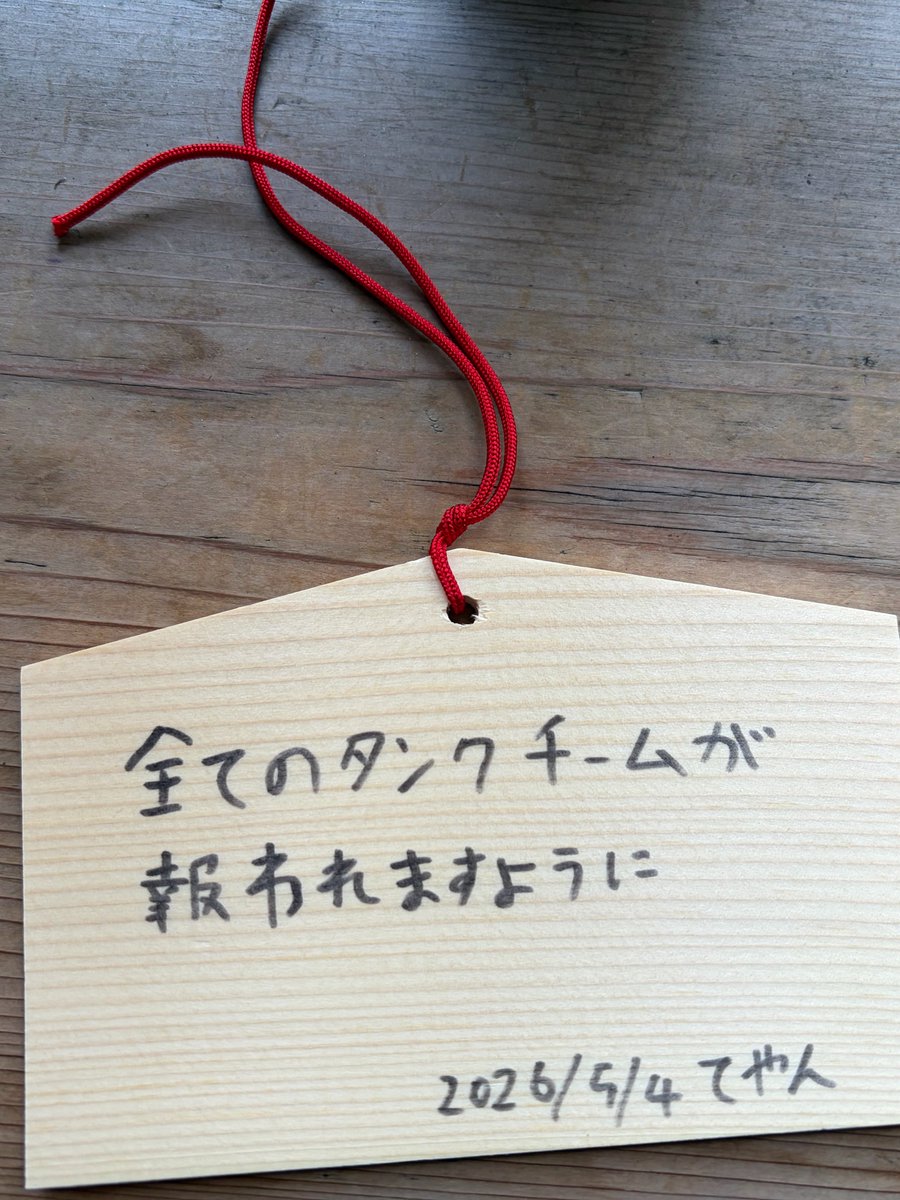 全てのタンクチームが
報われますように
2026/5/4 てやん